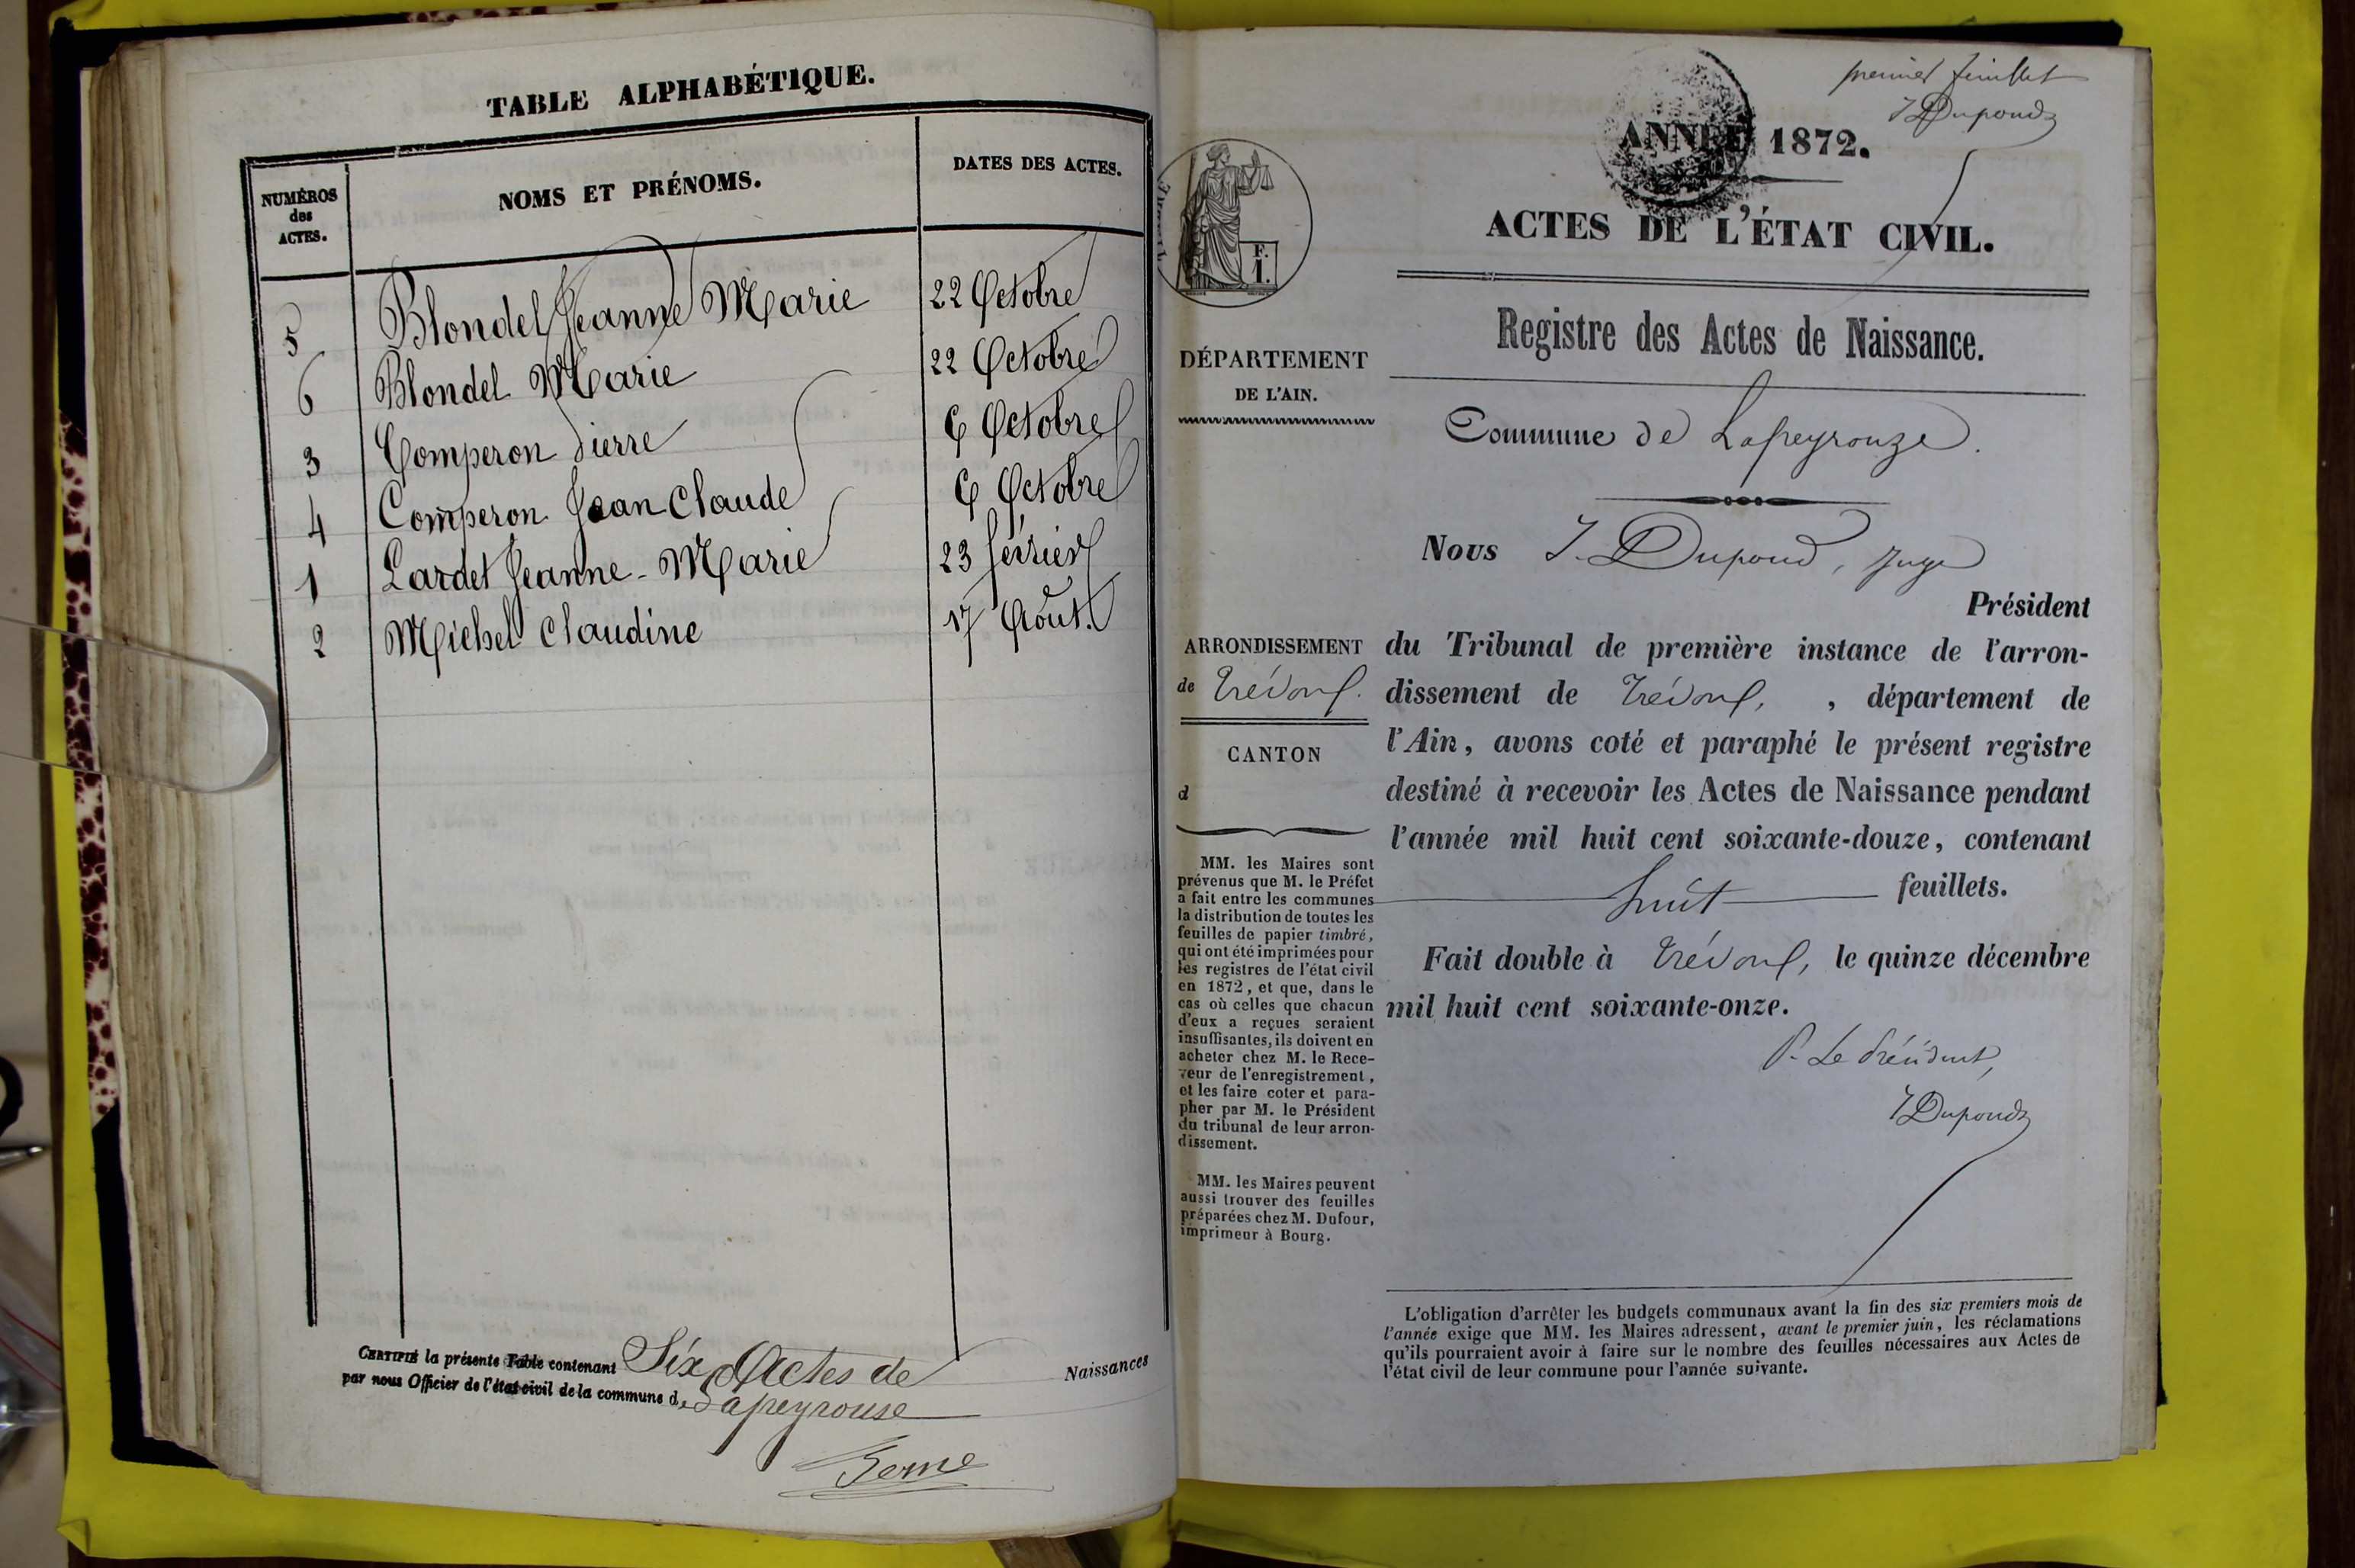 TABLE ALPHABÉTIQUE.
NUMÉROS des ACTES.
NOMS ET PRÉNOMS.
DATES DES ACTES.
5 Blondel Jeanne Marie 22 Octobre
6 Blondel Marie 22 Octobre
3 Comperon Pierre 6 Octobre
4 Comperon Jean Claude 6 Octobre
1 Lardet Jeanne-Marie 23 février
2 Michel Claudine 17 Août.
CERTIFIÉ la présente Table contenant Six Actes de Naissances
par nous Officier de l'état civil de la commune de Lapeyrouse
premier feuillet
J Dupond
ANNÉE 1872.
ACTES DE L'ÉTAT CIVIL.
F. 1.
Registre des Actes de Naissance.
DÉPARTEMENT
DE L'AIN.
Commune de Lapeyrouze.
Nous J. Dupond, Juge
Président
ARRONDISSEMENT
de Trévoux.
CANTON
d
du Tribunal de première instance de l'arron-
dissement de Trévoux, , département de
l'Ain, avons coté et paraphé le présent registre
destiné à recevoir les Actes de Naissance pendant
l'année mil huit cent soixante-douze, contenant
huit feuillets.
Fait double à Trévoux, le quinze décembre
mil huit cent soixante-onze.
P. Le Président,
J Dupond
MM. les Maires sont
prévenus que M. le Préfet
a fait entre les communes
la distribution de toutes les
feuilles de papier timbré,
qui ont été imprimées pour
les registres de l'état civil
en 1872, et que, dans le
cas où celles que chacun
d'eux a reçues seraient
insuffisantes, ils doivent en
acheter chez M. le Rece-
veur de l'enregistrement,
et les faire coter et para-
pher par M. le Président
du tribunal de leur arron-
dissement.
MM. les Maires peuvent
aussi trouver des feuilles
préparées chez M. Dufour,
imprimeur à Bourg.
L'obligation d'arrêter les budgets communaux avant la fin des six premiers mois de
l'année exige que MM. les Maires adressent, avant le premier juin, les réclamations
qu'ils pourraient avoir à faire sur le nombre des feuilles nécessaires aux Actes de
l'état civil de leur commune pour l'année suivante.